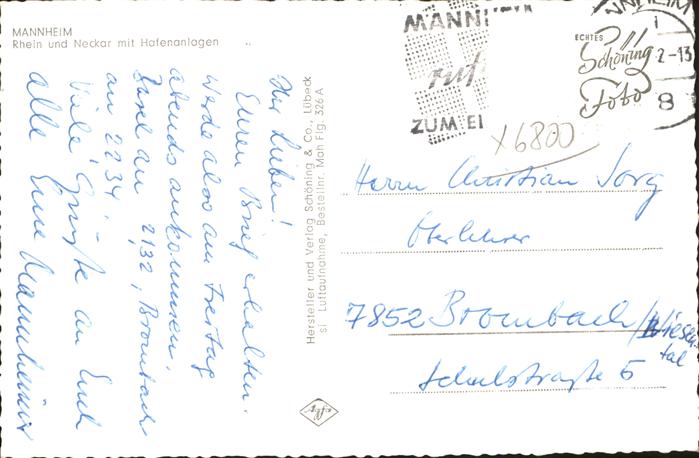 MANNHEIM
Rhein und Neckar mit Hafenanlagen
Ihr Lieben!
Euren Brief erhalten.
Werde also am Freitag
abends ankommen.
Basel an 2132, Brombach
an 2234
Viele Grüße an Euch
alle Eure Mannheimer
Hersteller und Verlag Schöning & Co., Lübeck
si Luftaufnahme, Bestellnr. Mah Flg. 326 A
MANNHEIM
ruft
ZUM EI
NNHEIM
2-13
8
ECHTES
Schöning
Foto
x6800
Herrn Christian Jorg
Oberlehrer
7852 Brombach/Wiesen
tal
Schulstraße 5
Agfa